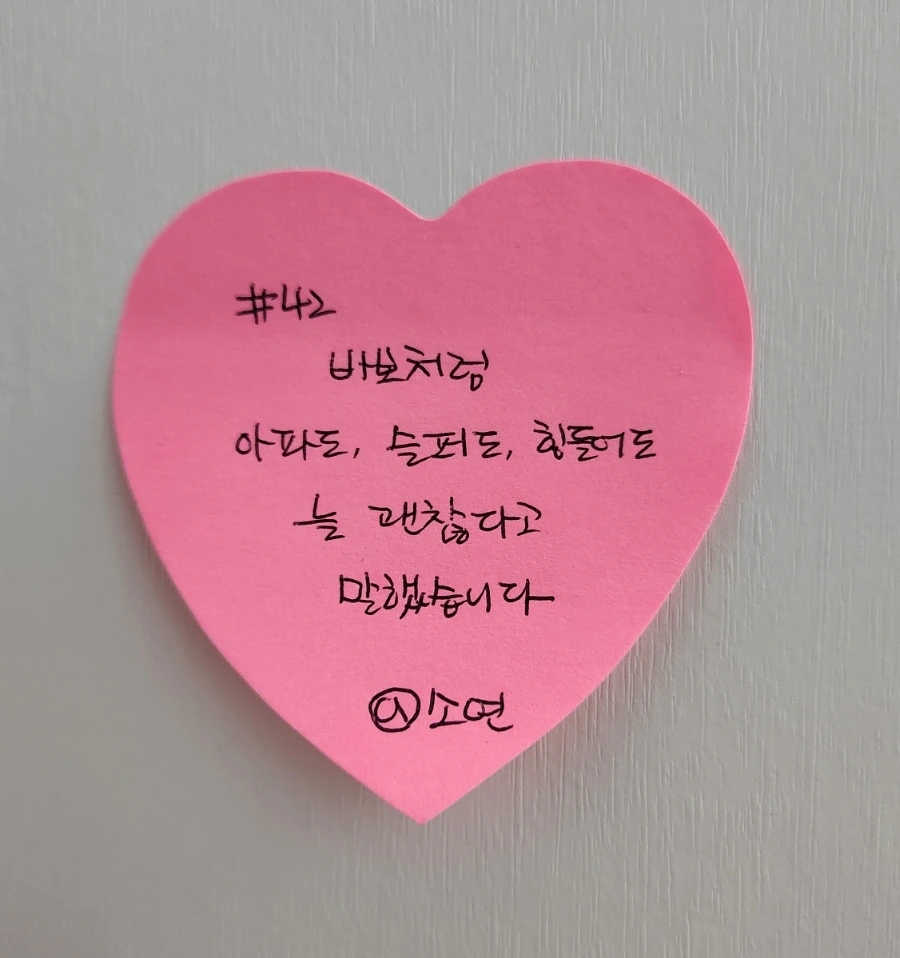 #42
바보처럼
아파도, 슬퍼도, 힘들어도
늘 괜찮다고
말했습니다
@소연